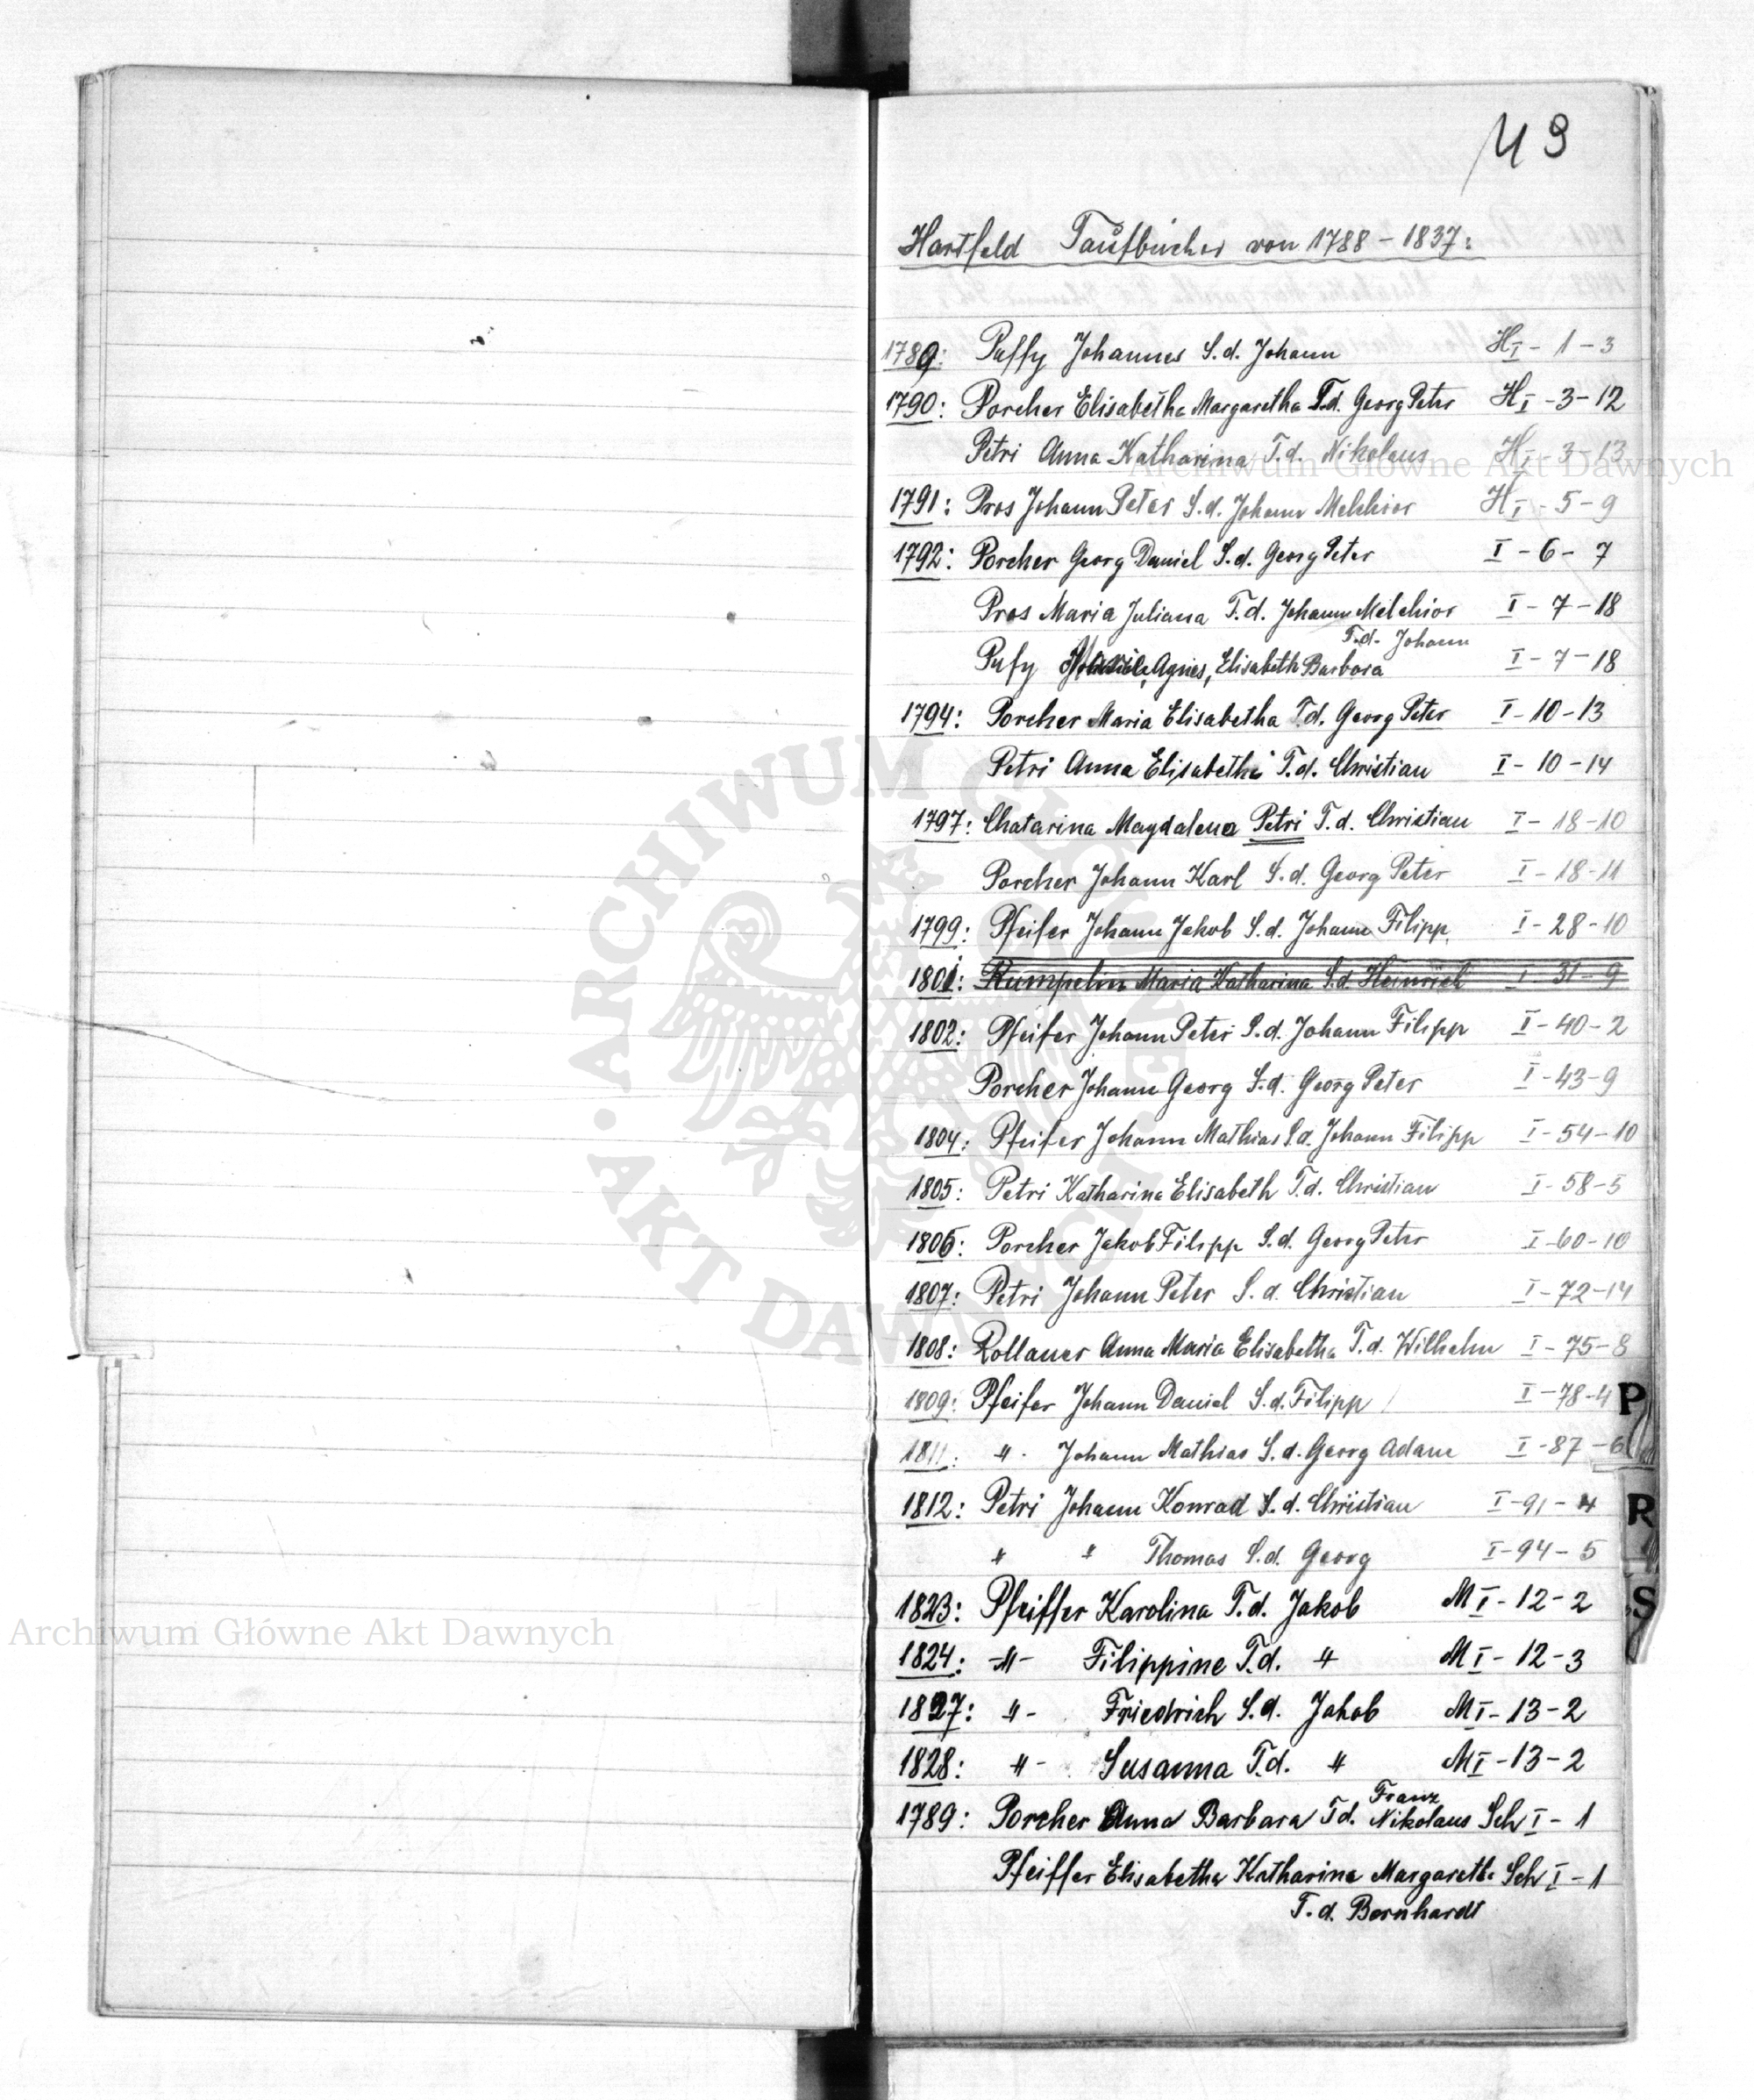 49
Hartfeld Taufbücher von 1788 - 1837:
1789: Puffy Johannes S.d. Johann H I - 1 - 3
1790: Porcher Elisabetha Margaretha T.d. Georg Peter H I - 3 - 12
Petri Anna Katharina T.d. Nikolaus H I - 3 - 13
1791: Pros Johann Peter S.d. Johann Melchior H I - 5 - 9
1792: Porcher Georg Daniel S.d. Georg Peter I - 6 - 7
Pros Maria Juliana T.d. Johann Melchior I - 7 - 18
T.d. Johann
Pufy Agnes, Elisabeth Barbara I - 7 - 18
1794: Porcher Maria Elisabetha T.d. Georg Peter I - 10 - 13
Petri Anna Elisabetha T.d. Christian I - 10 - 14
1797: Chatarina Magdalena Petri T.d. Christian I - 18 - 10
Porcher Johann Karl S.d. Georg Peter I - 18 - 11
1799: Pfeifer Johann Jakob S.d. Johann Filipp I - 28 - 10
1801: Rumpelin Maria Katharina S.d. Heinrich I - 31 - 9
1802: Pfeifer Johann Peter S.d. Johann Filipp I - 40 - 2
Porcher Johann Georg S.d. Georg Peter I - 43 - 9
1804: Pfeifer Johann Mathias S.d. Johann Filipp I - 54 - 10
1805: Petri Katharina Elisabeth T.d. Christian I - 58 - 5
1806: Porcher Jakob Filipp S.d. Georg Peter I - 60 - 10
1807: Petri Johann Peter S.d. Christian I - 72 - 14
1808: Rollauer Anna Maria Elisabetha T.d. Wilhelm I - 75 - 8
1809: Pfeifer Johann Daniel S.d. Filipp I - 78 - 4
P
1811: " - Johann Mathias S.d. Georg Adam I - 87 - 6
1812: Petri Johann Konrad S.d. Christian I - 91 - 4
R
" " Thomas S.d. Georg I - 94 - 5
1823: Pfeiffer Karolina T.d. Jakob M I - 12 - 2
S
1824: -"- Filippine T.d. " M I - 12 - 3
1827: " - Friedrich S.d. Jakob M I - 13 - 2
1828: " - Susanna T.d. " M I - 13 - 2
Franz
1789: Porcher Anna Barbara T.d. Nikolaus Sch I - 1
Pfeiffer Elisabetha Katharina Margaretha Sch I - 1
T.d. Bernhardt
Archiwum Główne Akt Dawnych
Archiwum Główne Akt Dawnych
ARCHIWUM GŁÓWNE AKT DAWNYCH